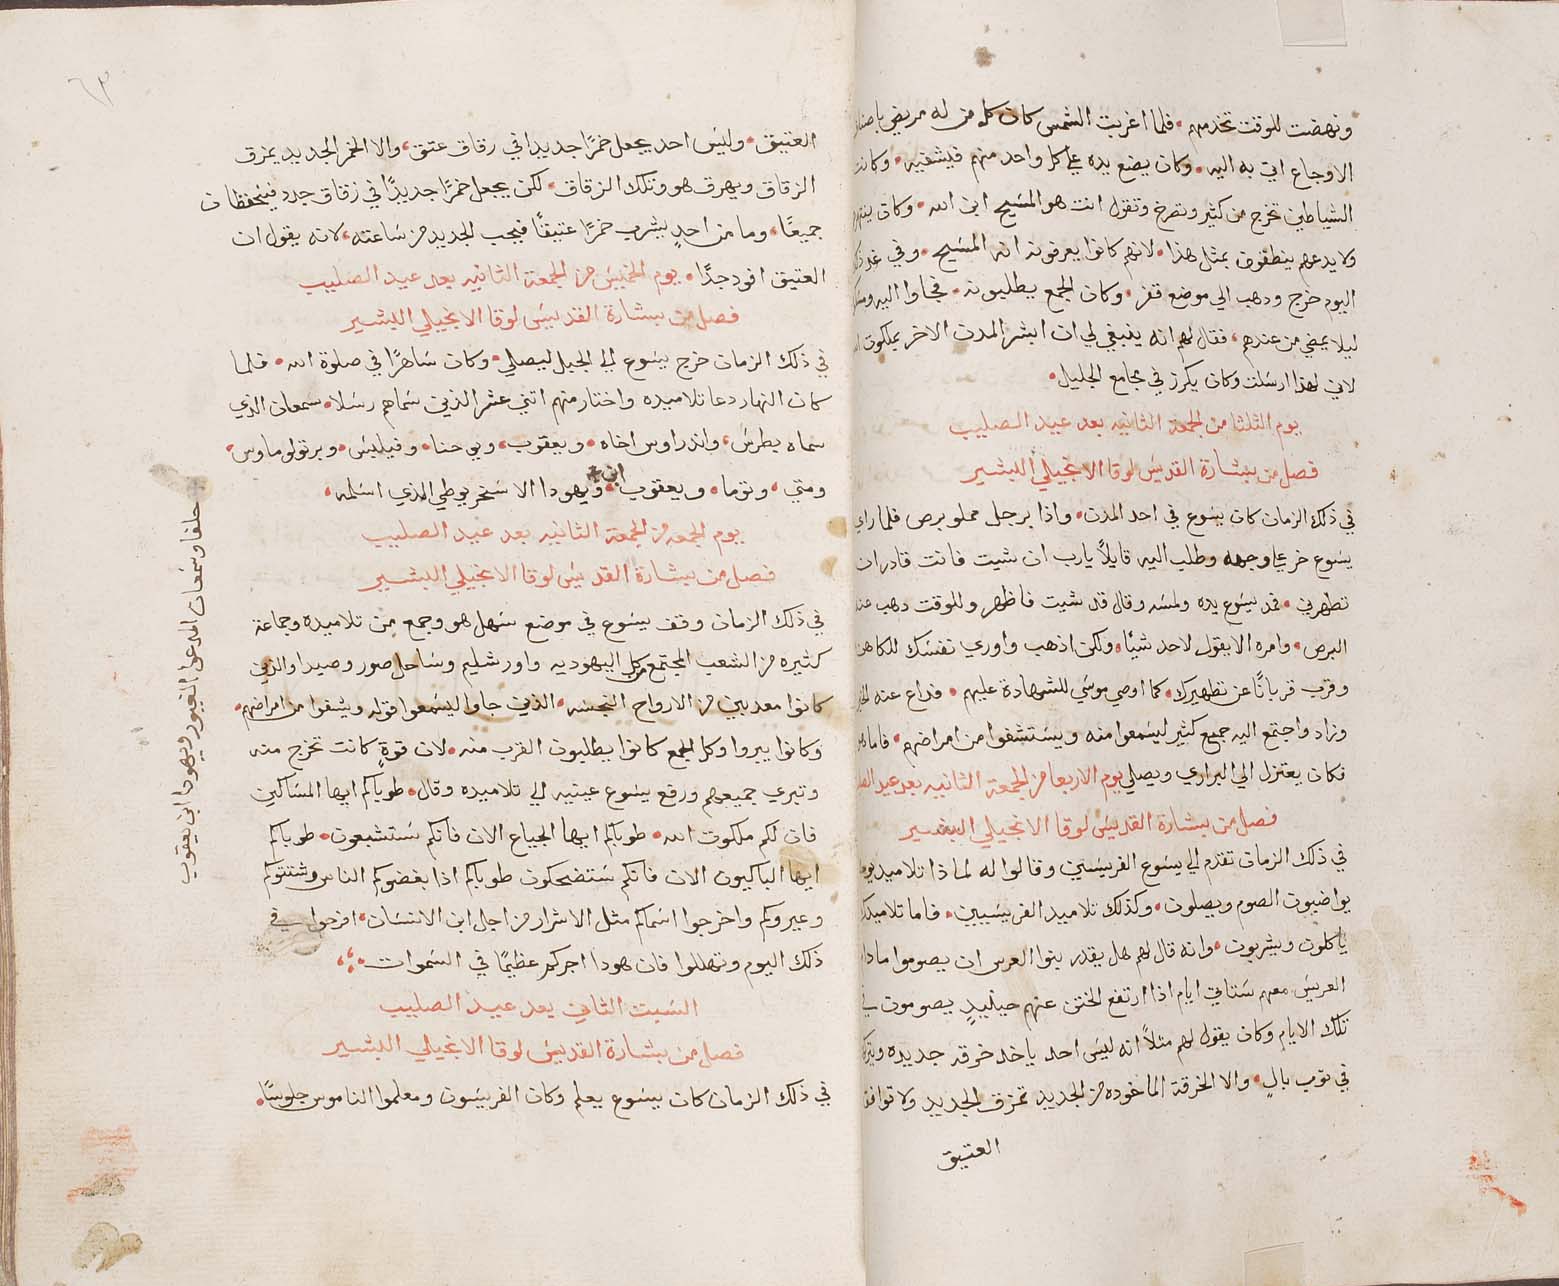 ونهضت للوقت تخدمهم • فلما اغربت الشمس كان كل من له مريض باصناف
الاوجاع اتي به اليه • وكان يضع يده علي كل واحد منهم فيشفيه • وكانت
الشياطين تخرج من كثير وتصرخ وتقول انت هو المسيح ابن الله • وكان ينتهر
ولا يدعهم ينطقون بمثل هذا • لانهم كانوا يعرفونه انه المسيح • وفي غد ذلك
اليوم خرج ودهب الي موضع قفر • وكان الجمع يطلبونه • فجاوا اليه
ليلا يمضي من عندهم، فقال لهم انه ينبغي لي ان ابشر المدن الاخر بملكوت
لاني لهذا ارسلت وكان يكرز في مجامع الجليل •
يوم الثلثا من الجمعة الثانيه بعد عيد الصليب
فصل من بشارة القديس لوقا الانجيلي البشير
في ذلك الزمان كان يسوع في احد المدن • واذا برجل مملو برص فلما راي
يسوع خر علي وجهه وطلب اليه قايلاً يارب ان شيت فانت قادر ان
تطهرني • فمد يسوع يده ولمسه وقال قد شيت فاطهر وللوقت دهب عنه
البرص • وامره الا يقول لاحد شيًا • ولكن اذهب واوري نفسك للكاهن
وقرب قربانًا عن تطهيرك • كما اوصي موسي للشهادة عليهم • فداع عنه
وزاد واجتمع اليه جميع كثير ليسمعوا منه ويستشفوا من امراضهم • فاما هو
فكان يعتزل الي البراري ويصلي يوم الاربعا من الجمعة الثانيه بعد عيد
فصل من بشارة القديس لوقا الانجيلي البشير
في ذلك الزمان تقدم الي يسوع الفريسيين وقالوا له لماذا تلاميد
يواضبون الصوم ويصلون • وكذلك تلاميد الفريسيين • فاما تلاميدك
ياكلون ويشربون • وانه قال لهم هل يقدر بنوا العرس ان يصوموا مادام
العريس معهم ستاتي ايام اذا ارتفع الختن عنهم حينيدٍ يصومون في
تلك الايام وكان يقول لهم مثلاً انه ليس احد ياخد خرقه جديده
في توب بالٍ • والا الخرقة الماخوده من الجديد تمزق الجديد ولا توافق
العتيق
٦٣
العتيق • وليس احد يجعل خمرًا جديدًا في زقاق عتق، والا الخمر الجديد يمزق
الزقاق ويهرق هو وتلك الزقاق • لكن يجعل خمرًا جديدًا في زقاق جدد فيتحفظان
جميعًا، وما من احدٍ يشرب خمرًا عتيقًا فيحب الجديد من ساعته، لانه يقول ان
العتيق اقود جدًا • يوم الخميس من الجمعة الثانيه بعد عيد الصليب
فصل من بشارة القديس لوقا الانجيلي البشير
في ذلك الزمان خرج يسوع الي الجبل ليصلي • وكان ساهرًا في صلوة الله • فلما
كان النهار دعا تلاميده واختار منهم اتني عشر الذين سماهم رسلا • سمعان الذي
سماه بطرس، واندراوس اخاه • ويعقوب، ويوحنا • وفيلبس • وبرتولوماوس •
ومتي، وتوما • ويعقوب • ابن + ويهودا الاسخريوطي الذي اسلمه،
حلفا وسمعان المدعوا الغيور ويهودا ابن يعقوب
يوم الجمعه من الجمعة الثانيه بعد عيد الصليب
فصل من بشارة القديس لوقا الانجيلي البشير
في ذلك الزمان وقف يسوع في موضع سهل هو وجمع من تلاميده وجماعة
كثيره من الشعب المجتمع من كل اليهوديه واورشليم وساحل صور وصيدا والذين
كانوا معدبين من الارواح النجسه • الذين جاوا ليسمعوا قوله ويشفوا من امراضهم •
وكانوا يبروا وكل الجمع كانوا يطلبون القرب منه • لان قوةٍ كانت تخرج منه
وتبري جميعهم ورفع يسوع عينيه الي تلاميده وقال • طوباكم ايها المساكين
فان لكم ملكوت الله • طوباكم ايها الجياع الان فانكم ستشبعون • طوباكم
ايها الباكيون الان فانكم ستضحكون طوباكم اذا بغضوكم الناس وشتتوكم
وعيروكم واخرجوا اسماكم مثل الاشرار من اجل ابن الانسان • افرحوا في
ذلك اليوم وتهللوا فان هودا اجركم عظيمًا في السموات •
السبت الثاني بعد عيد الصليب
فصل من بشارة القديس لوقا الانجيلي البشير
في ذلك الزمان كان يسوع يعلم وكان الفريسون ومعلموا الناموس جلوسًا •